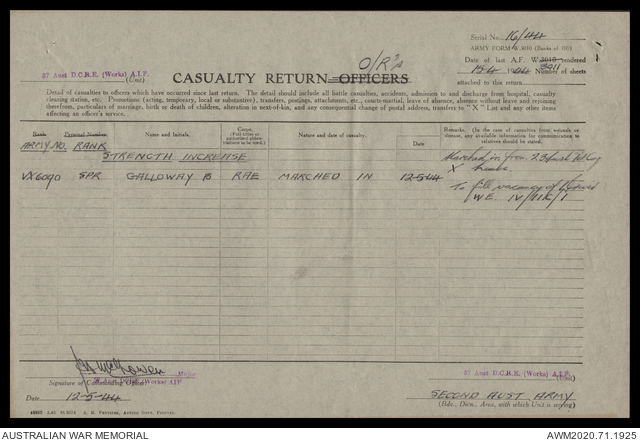 Serial No. 16/44
ARMY FORM W.3010 (Books of 100)
O/R's
Date of last A.F. W.3010 rendered
3011
67 Aust D.C.R.E. (Works) A.I.F.
(Unit)
CASUALTY RETURN—OFFICERS
15-4 1944 Number of sheets
attached to this return
Detail of casualties to officers which have occurred since last return. The detail should include all battle casualties, accidents, admission to and discharge from hospital, casualty
clearing station, etc. Promotions (acting, temporary, local or substantive), transfers, postings, attachments, etc., courts-martial, leave of absence, absence without leave and rejoining
therefrom, particulars of marriage, birth or death of children, alteration in next-of-kin, and any consequential change of postal address, transfers to "X" List and any other items
affecting an officer's service.
Rank Personal Number Name and Initials. Corps. (Full titles or authorised abbreviations to be used.) Nature and date of casualty. Date Remarks. (In the case of casualties from wounds or disease, any available information for communication to relatives should be stated.)
ARMY NO. RANK
STRENGTH INCREASE
Marched in from 23 Aust
X
VX6090 SPR GALLOWAY B RAE MARCHED IN 12-5-44
To fill vacancy of
W.E. IV/
Major
Signature of Commanding Officer
Aust D.C.R.E. (Works) A.I.F.
Date 12-5-44
67 Aust D.C.R.E. (Works) A.I.F.
(Unit)
SECOND AUST ARMY
(Bde., Divn., Area, with which Unit is serving)
AUSTRALIAN WAR MEMORIAL
AWM2020.71.1925